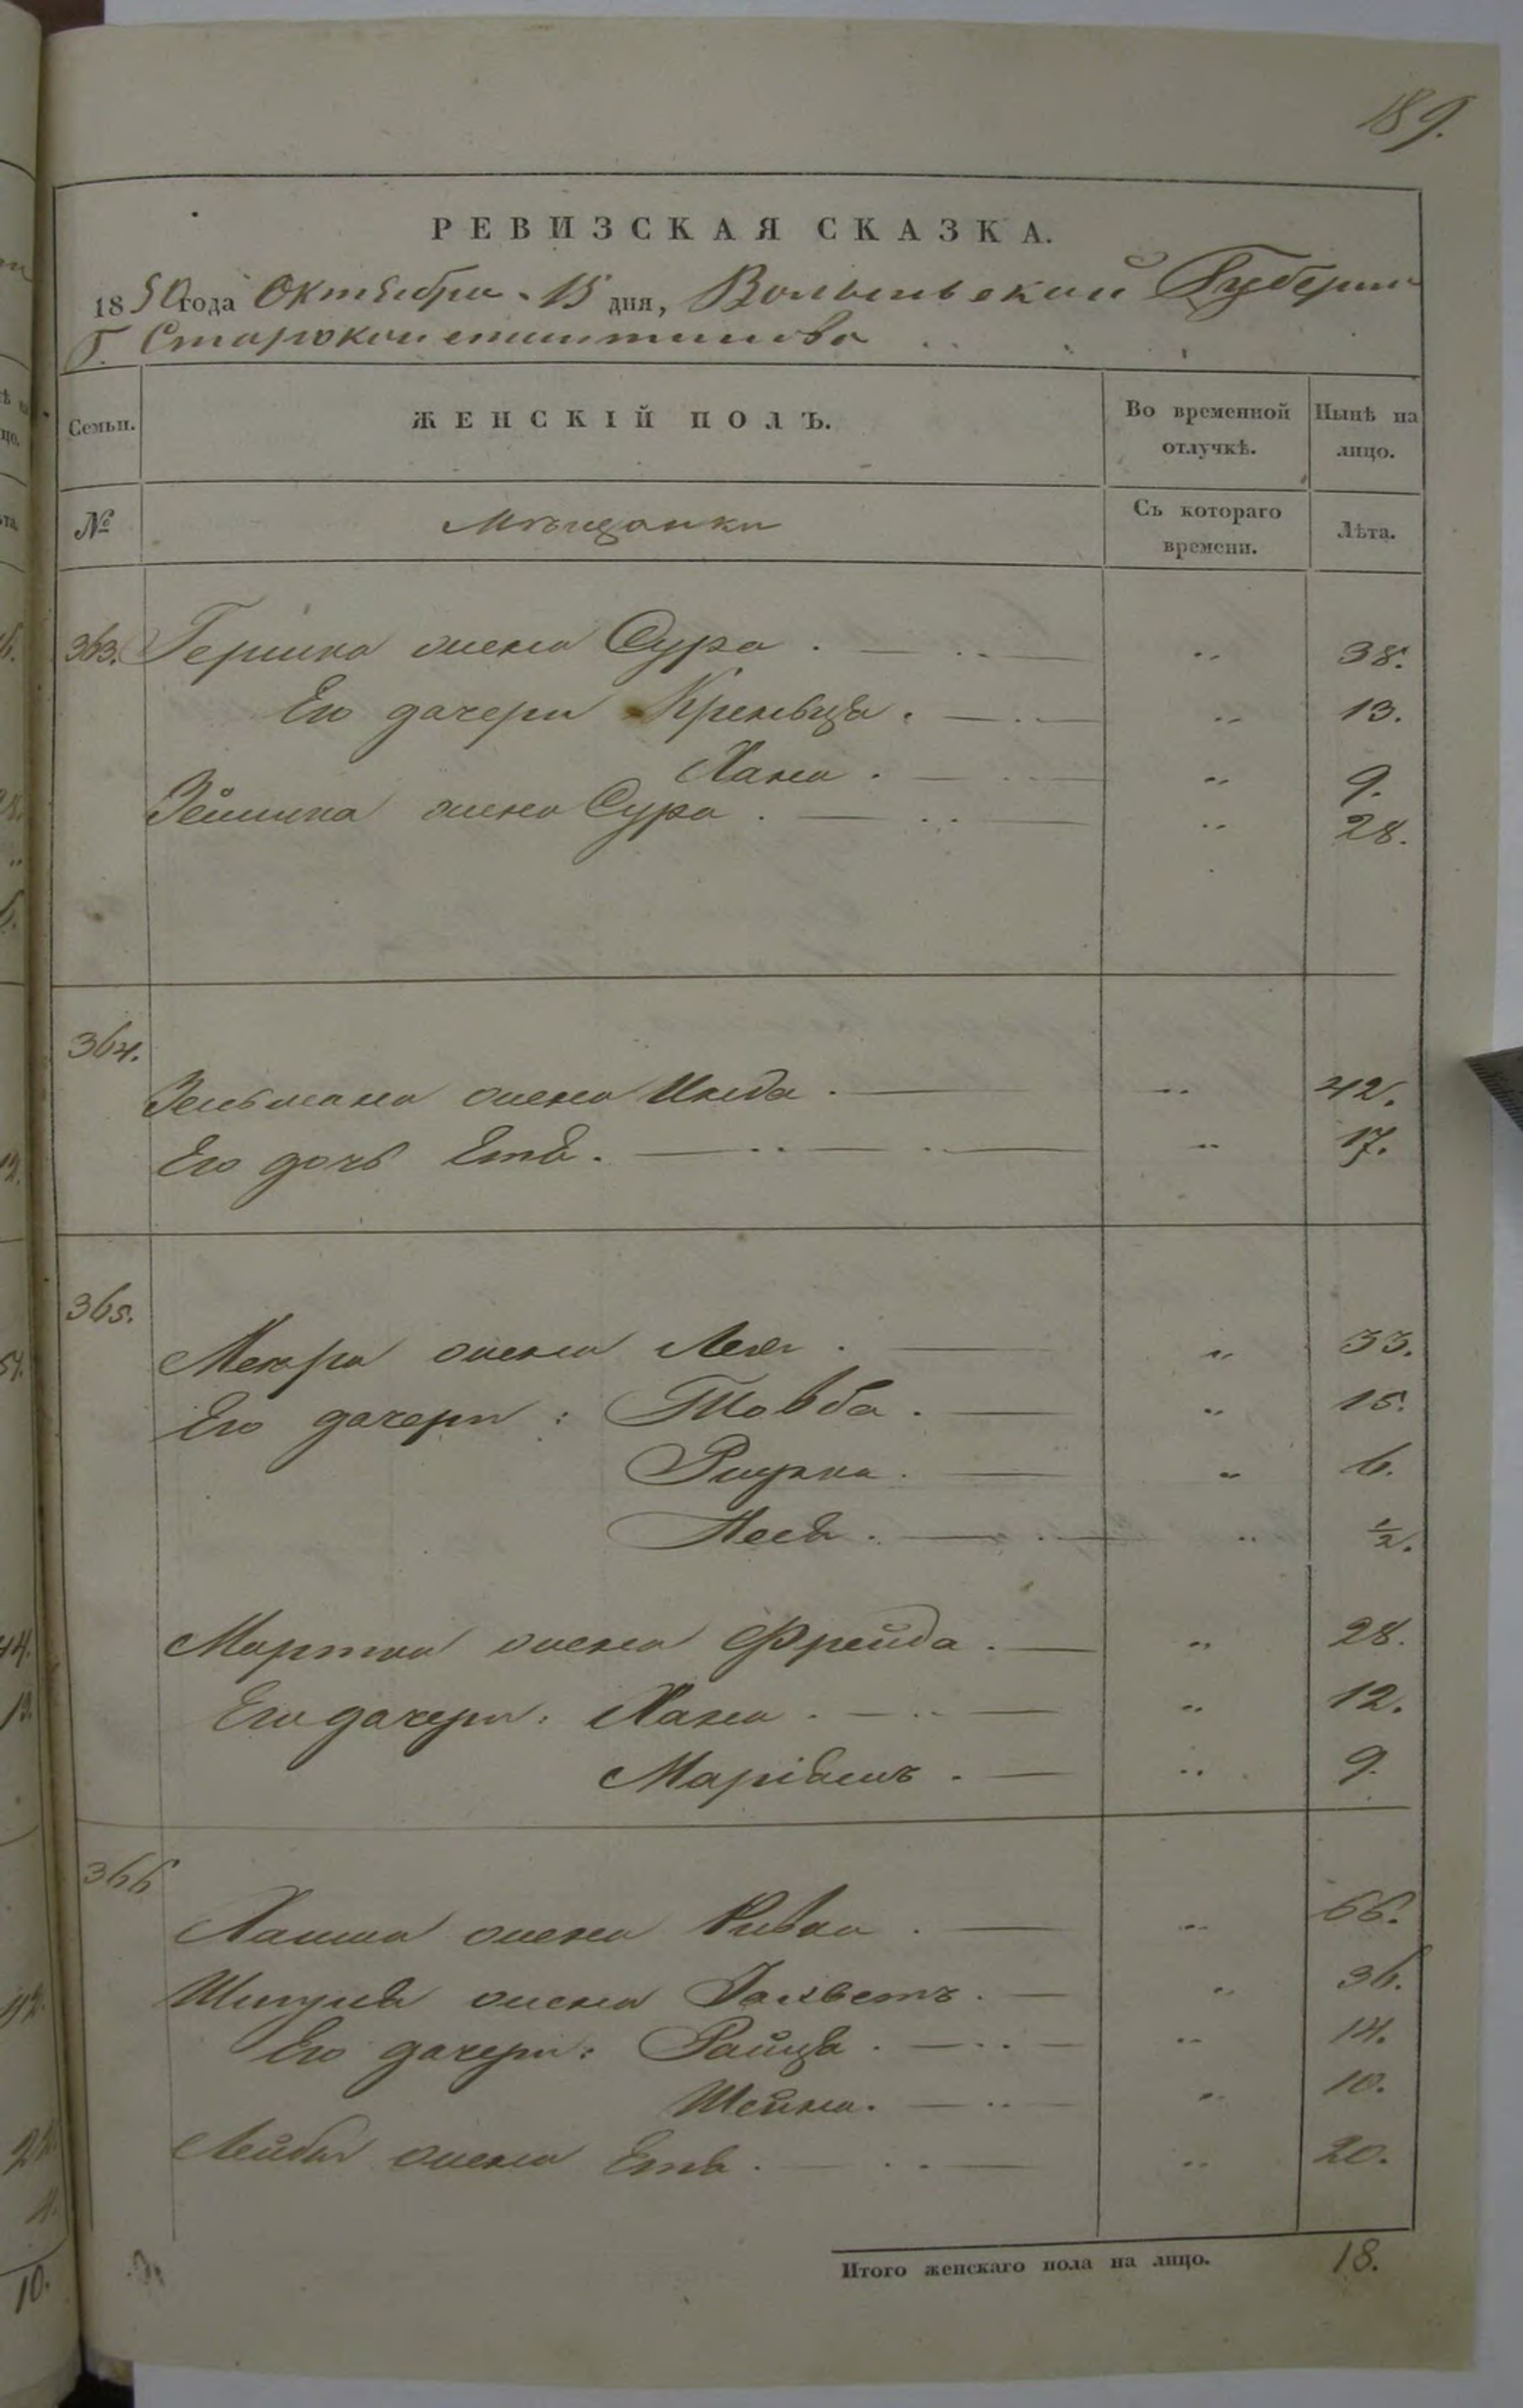 189.
РЕВИЗСКАЯ СКАЗКА.
1850 года Октября 15 дня, Волынской Губерніи
Г. Староконстантинова
Семьи. ЖЕНСКІЙ ПОЛЪ. Во временной отлучкѣ. Нынѣ на лицо.
№ Мѣщанки Съ котораго времени. Лѣта.
363. Гершка жена Сура . — .. — „ 38.
Его дочери Креньця . — .. — „ 13.
Хана . — .. — „ 9.
жена Сура . — .. — „ 28.
364.
Зельмана жена . — „ 42.
Его дочь Етя . — .. — .. — „ 17.
365.
жена Лея . — „ 33.
Его дочери : Товба . — „ 15.
„ 6.
Нася . — .. — „ ½.
жена Фрейда . — „ 28.
Его дочери : Хана . — .. — „ 12.
Маріямъ . — „ 9.
366
жена Ривка . — „ 66.
жена . — „ 36.
Его дочери : Райця . — .. — „ 14.
Шейна . — .. — „ 10.
Лейбы жена Етя . — .. — „ 20.
Итого женскаго пола на лицо. 18.